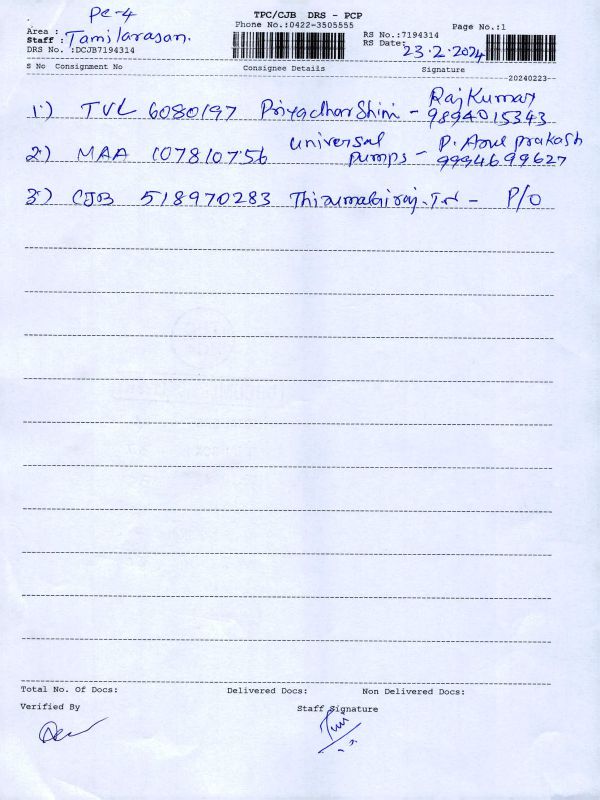 Pc-4
TPC/CJB DRS - PCP
Phone No.:0422-3505555
Page No.:1
Area :
Staff : Tamilarasan.
DRS No. :DCJB7194314
RS No.:7194314
RS Date: 23.2.2024
S No Consignment No Consignee Details Signature
--20240223--
1) TVL 6080197 Priyadharshini - RajKumar
9894015343
2) MAA 107810756 universal pumps - P. Arul prakash
9994699627
3) CJB 518970283 Thirumalairaj.Tr - P/O
Total No. Of Docs: Delivered Docs: Non Delivered Docs:
Verified By Staff Signature